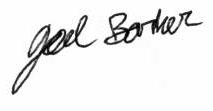 Joel Barker